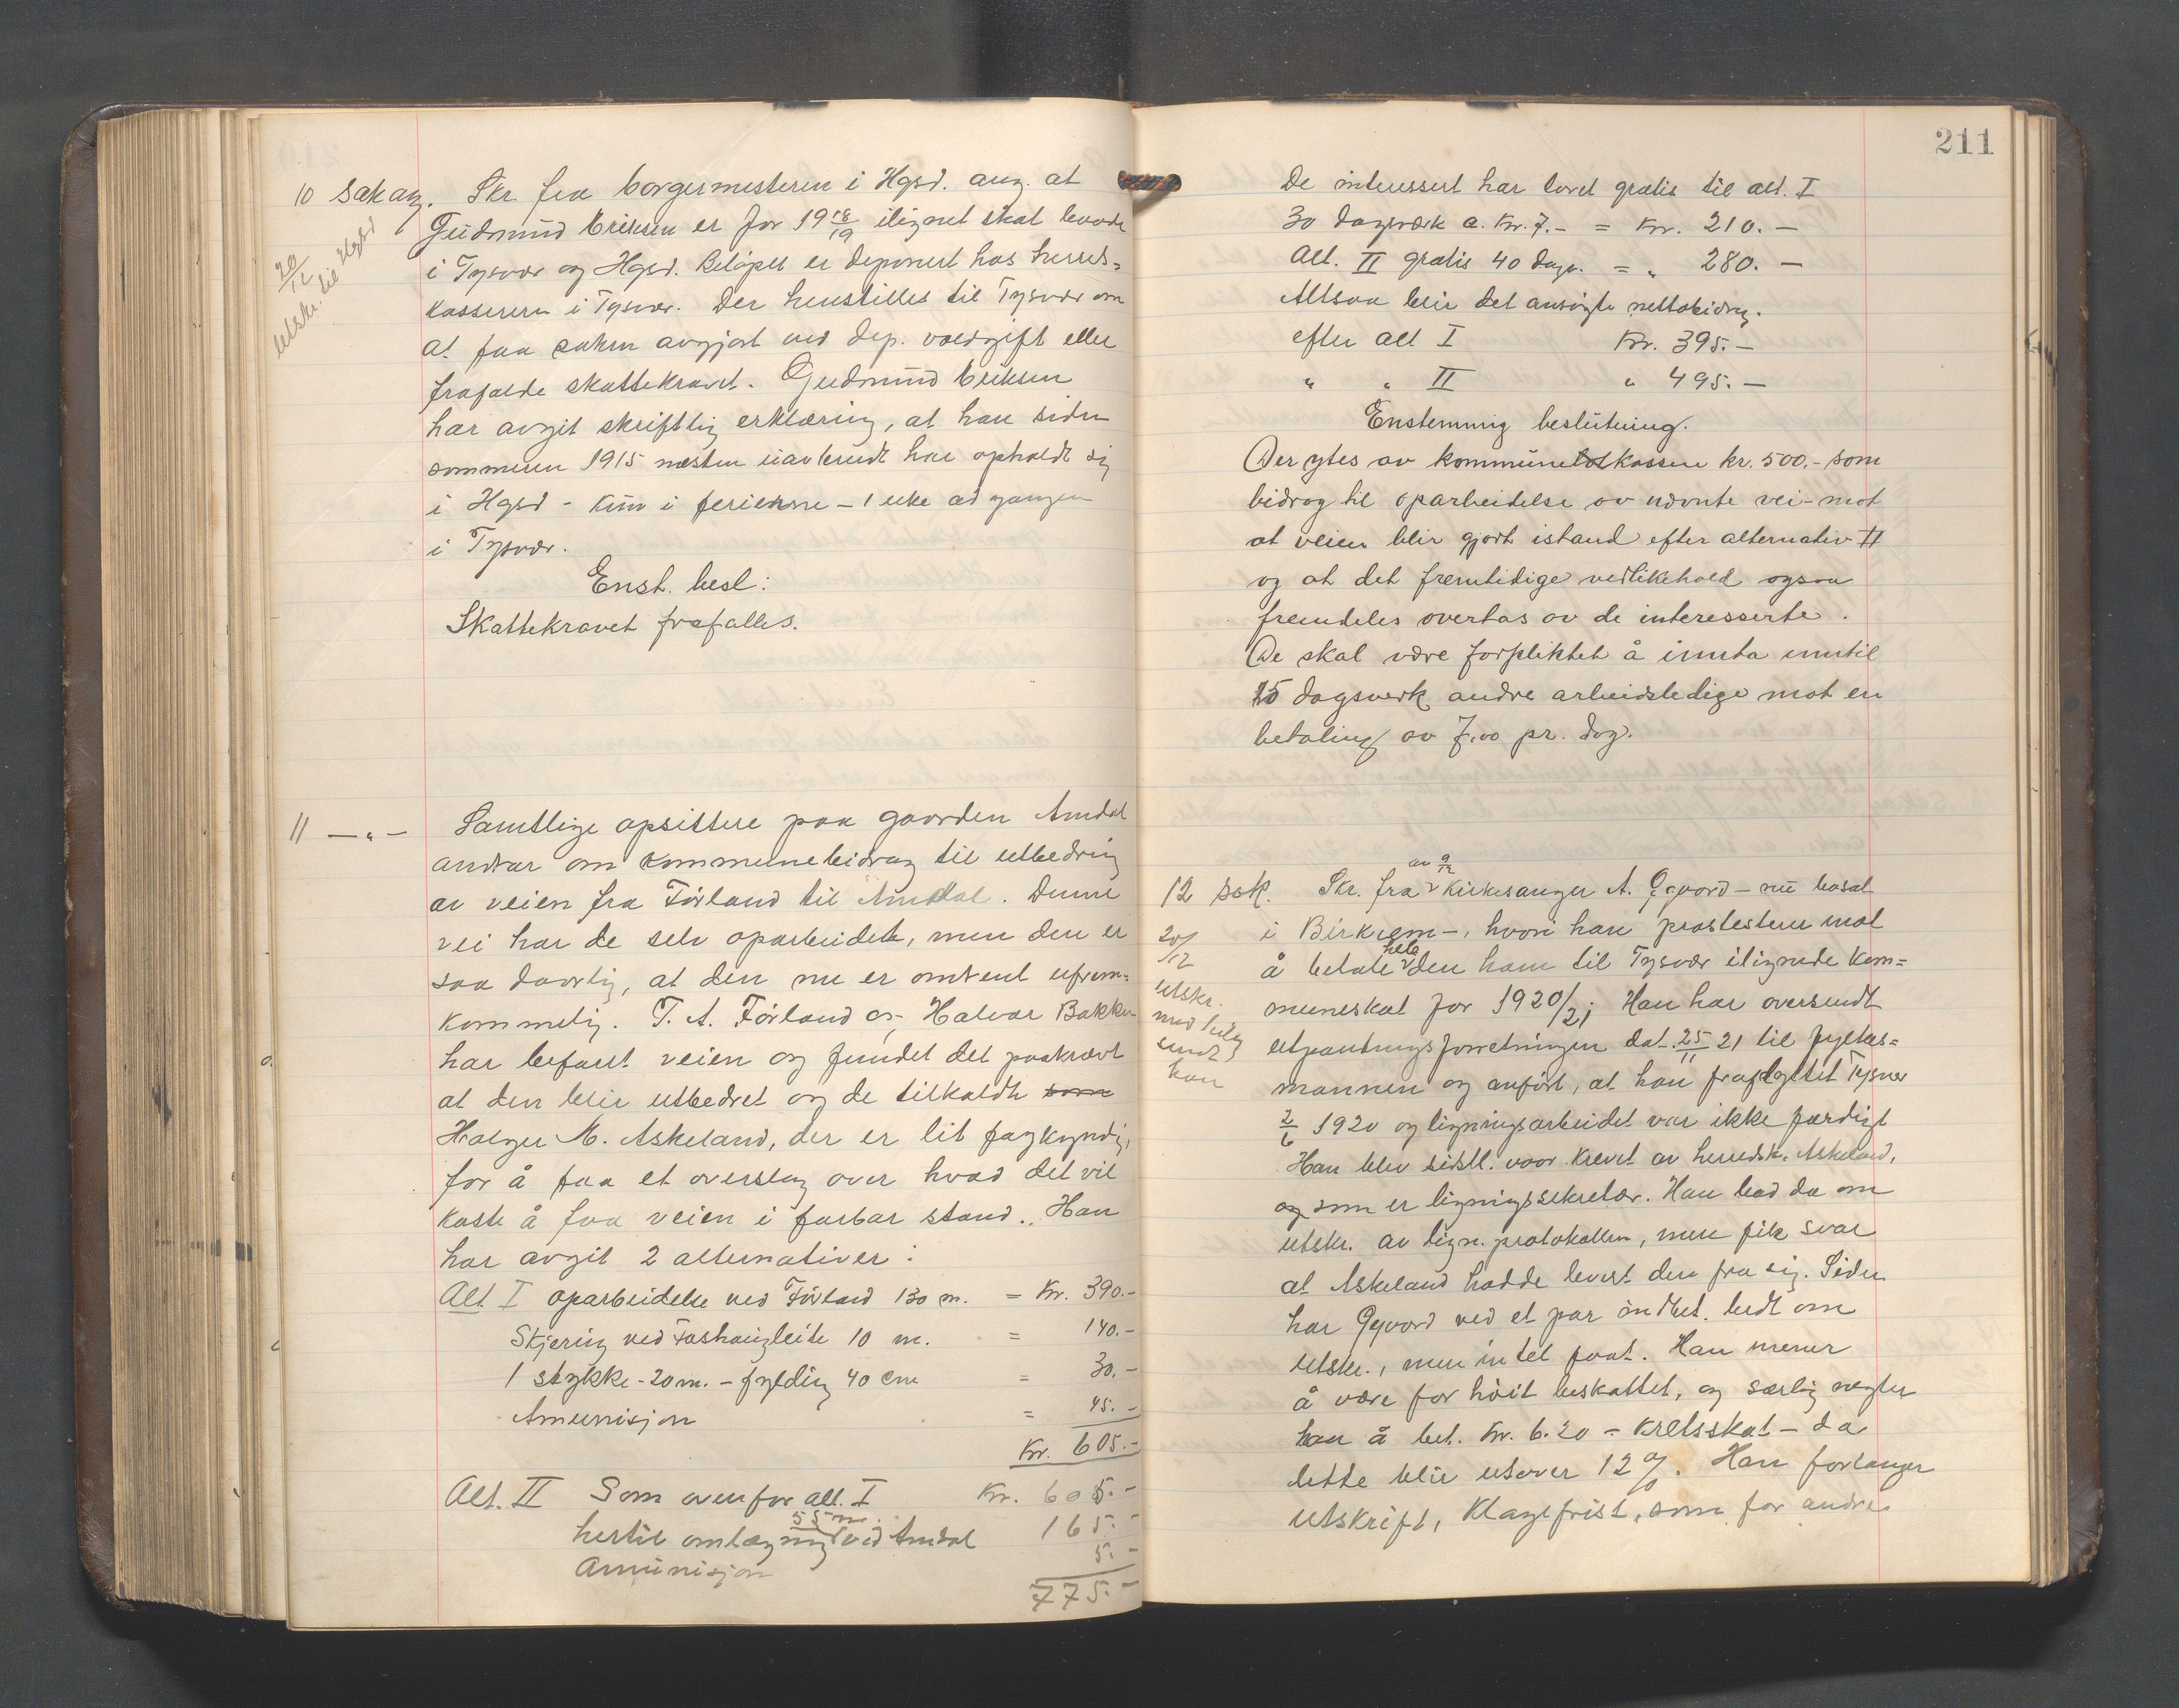 10 Sak ang. Skr. fra borgermesteren i Hgsd. ang. at
Gudmund Eriksen er for 19 18/19 ilignet skat baade
20/12 utskr. til Hgsd
i Tysvær og Hgsd. Beløpet er deponert hos herreds-
kassereren i Tysvær. Der henstilles til Tysvær om
at faa saken avgjort ved dep. voldgift eller
frafalde skattekravet. Gudmund Eriksen
har avgit skriftlig erklæring, at han siden
sommeren 1915 næsten uavbrudt har opholdt sig
i Hgsd - kun i ferierne - 1 uke ad gangen
i Tysvær.
Enst. besl:
Skattekravet frafalles.
11 — " — Samtlige opsittere paa gaarden Amdal
andrar om kommunebidrag til utbedring
av veien fra Førland til Amdal. Denne
vei har de selv oparbeidet, men den er
saa daarlig, at den nu er omtrent ufrem=
kommelig. T. A. Førland og Halvar Bakka
har befaret veien og fundet det paakrævt
at den blir utbedret og de tilkaldte som
Holger M. Askeland, der er lit fagkyndig,
for å faa et overslag over hvad det vil
koste å faa veien i farbar stand. Han
har avgit 2 alternativer:
Alt I oparbeidelse ved Førland 130 m. = Kr. 390.-
Skjering ved Foshaugleite 10 m. = 140.-
1 stykke - 20 m. - fylding 40 cm = 30.-
Amunisjon = 45.-
Kr. 605.-
Alt. II Som ovenfor alt. I Kr. 605.-
55 m.
hertil omlægning ved Amdal 165.-
Amunisjon 5.-
775.-
211
De interessert har lovet gratis til alt. I
30 dagsverk a. Kr. 7.- = Kr. 210.-
Alt. II gratis 40 dagv. = " 280.-
Altsaa blir det ansøgte nettobidrag.
efter alt I Kr. 395.-
" " II " 495.-
Enstemmig beslutning.
Der ytes av kommunekassen kr. 500.- som
bidrag til oparbeidelse av nævnte vei - mot
at veien blir gjort istand efter alternativ II
og at det fremtidige vedlikehold ogsaa
fremdeles overtas av de interesserte.
De skal være forpliktet å innta inntil
15 dagsverk andre arbeidsledige mot en
betaling av 7,00 pr. dag.
av 9/12
12 sak. Skr. fra kirkesanger A. Gjvord - nu bosat
i Birkrem -, hvori han prostesterer mot
hele
å betale den ham til Tysvær ilignede kom=
20/12 utskr. med bilag sendt han
muneskat for 1920/21. Han har oversendt
utpantningsforretningen dat. 25/11 21 til fylkes=
mannen og anført, at han fraflyttet Tysvær
2/6 1920 og ligningsarbeidet var ikke færdigt
Han blev sidstl. vaar krevet av herredsk. Askeland,
og som er ligningssekretær. Han bad da om
utskr. av lign. protokollen, men fik svar
at Askeland hadde levert den fra sig. Siden
har Gjvord ved et par
utskr., men intet faat. Han mener
å være for høit beskattet, og særlig negter
han å bet. Kr. 6.20 - kretsskat - da
dette blir utover 12 %. Han forlanger
utskrift, klagefrist, som for andre